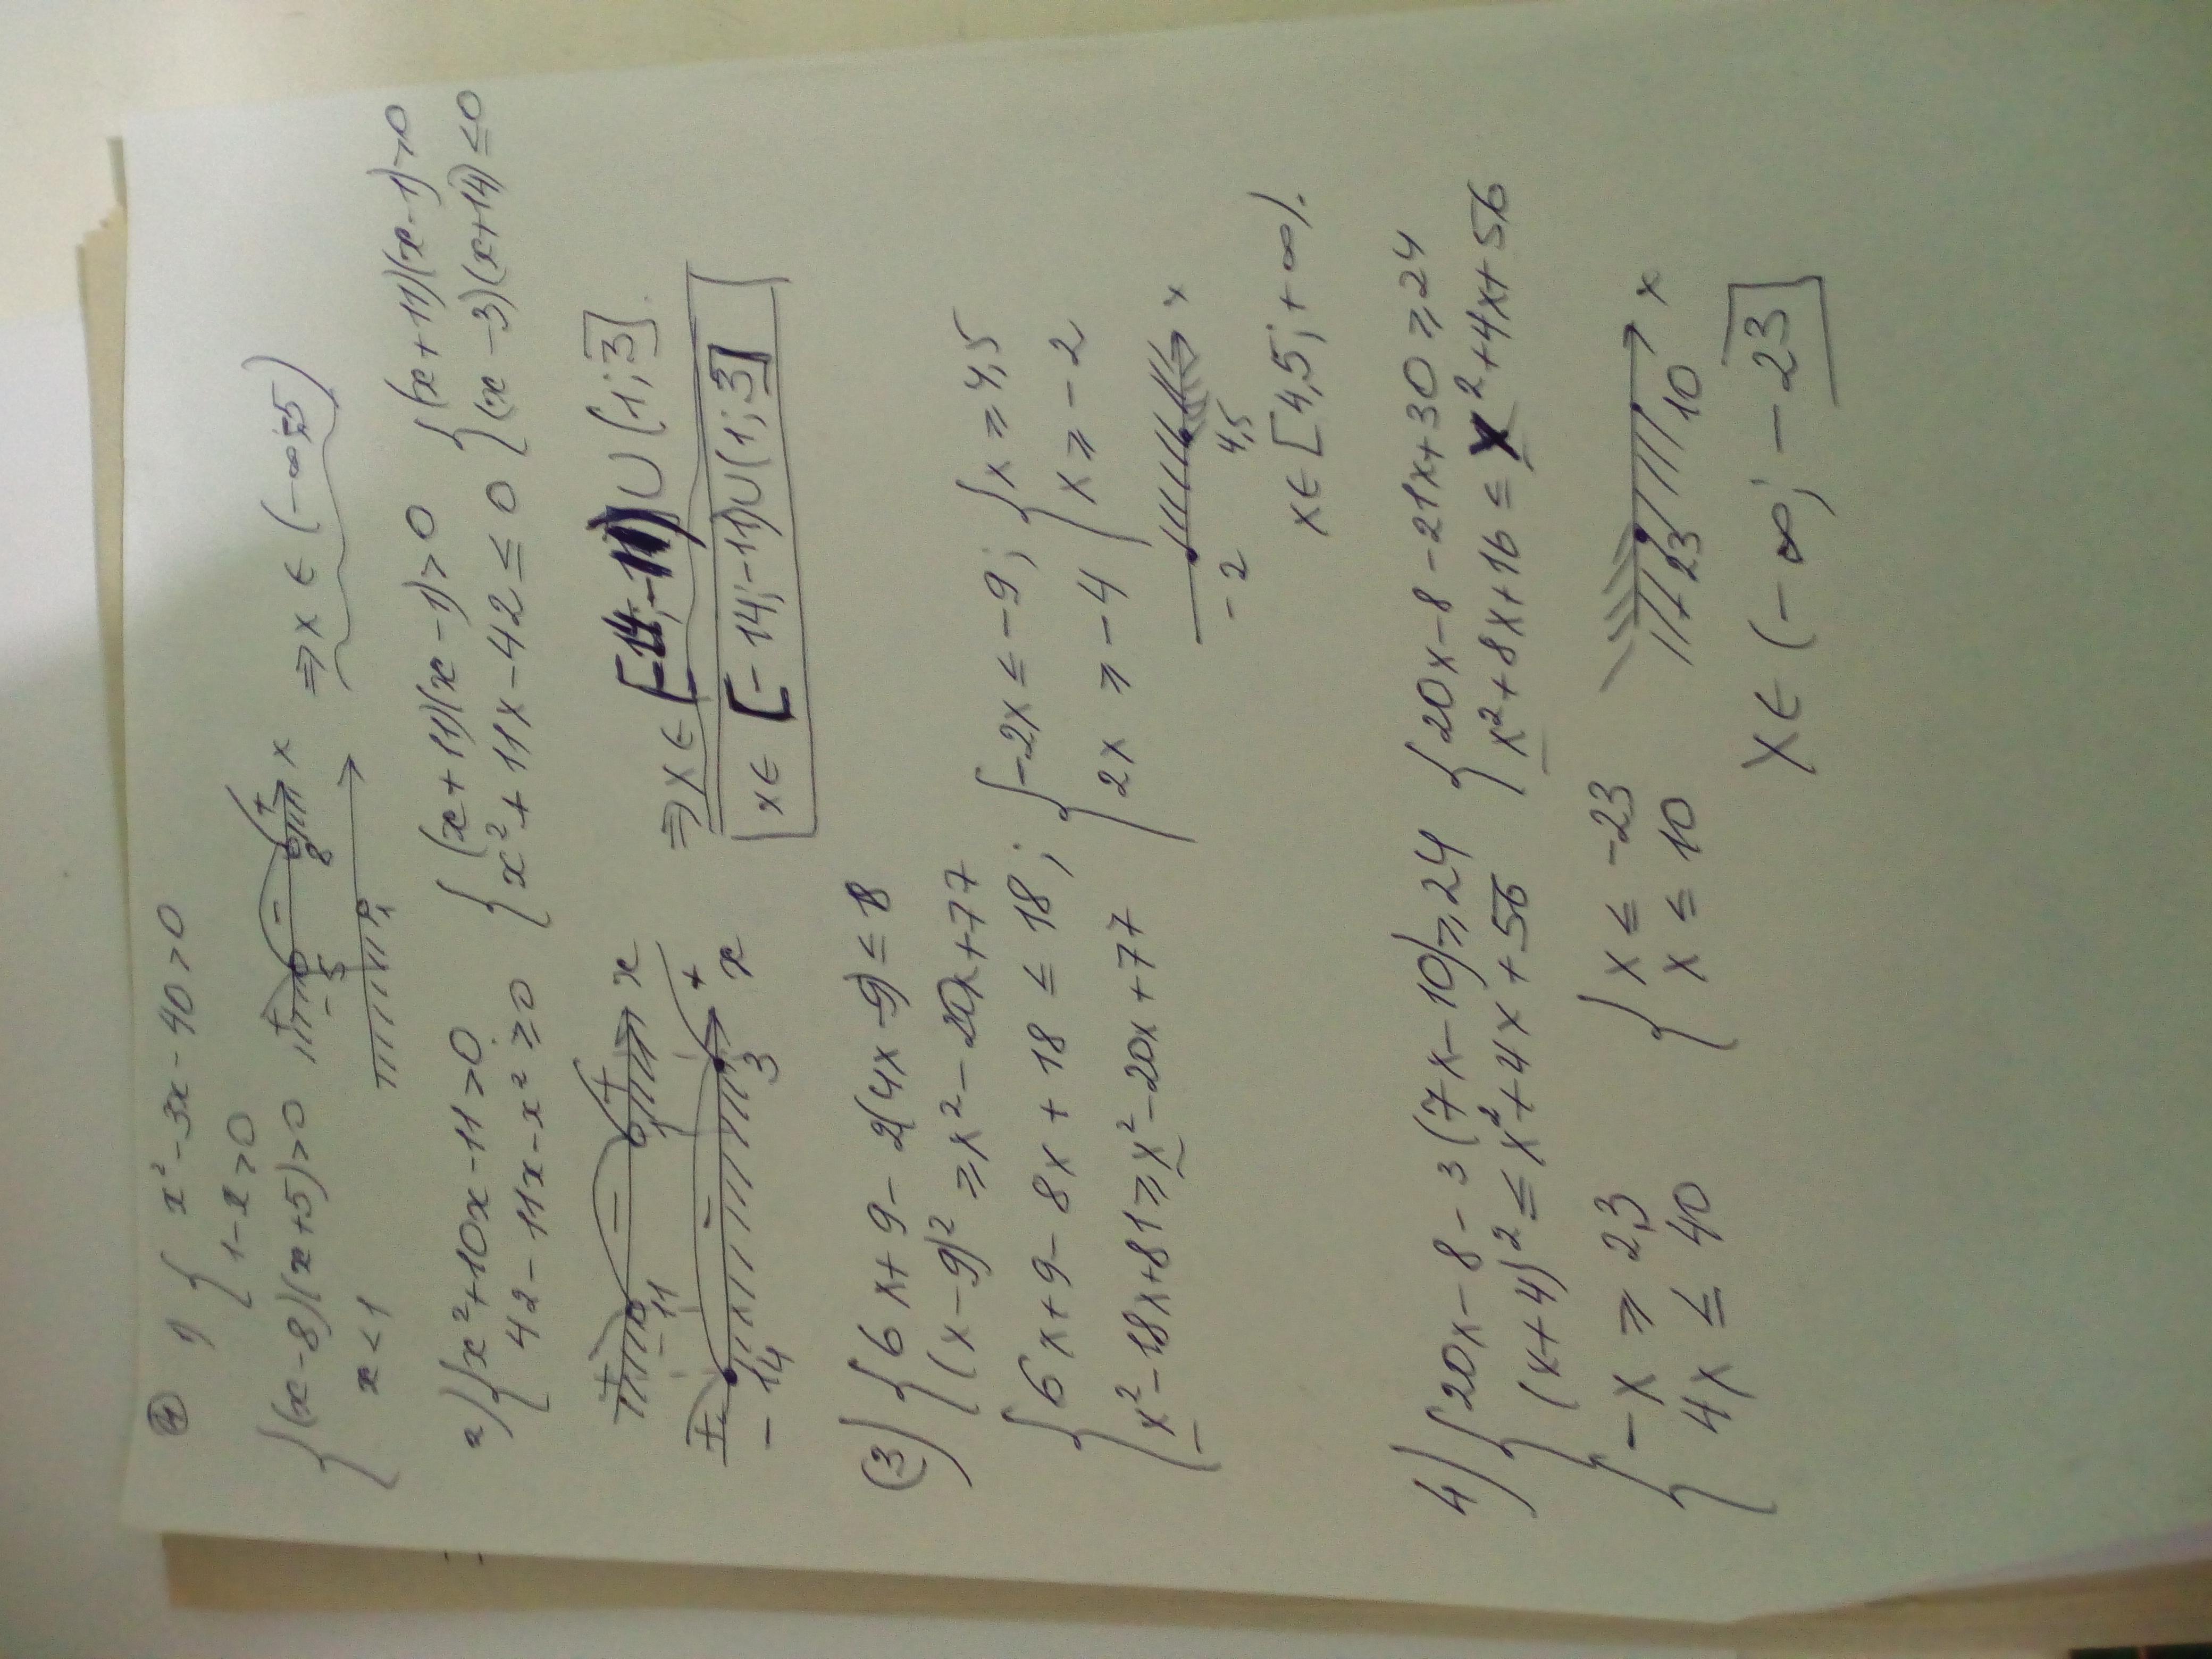 ④ 1) { x² - 3x - 40 > 0
1 - x > 0
{ (x - 8)(x + 5) > 0
x < 1
+ - +
-5 8 x
1
⇒ x ∈ (-∞; -5)
2) { x² + 10x - 11 > 0
42 - 11x - x² ≥ 0
{ (x + 11)(x - 1) > 0
x² + 11x - 42 ≤ 0
{ (x + 11)(x - 1) > 0
(x - 3)(x + 14) ≤ 0
+ - +
-11 1 x
+ - +
-14 3 x
⇒ x ∈ [-14; -11) ∪ (1; 3]
x ∈ [-14; -11) ∪ (1; 3]
(3) { 6x + 9 - 2(4x - 9) ≤ 18
(x - 9)² ≥ x² - 20x + 77
{ 6x + 9 - 8x + 18 ≤ 18;
x² - 18x + 81 ≥ x² - 20x + 77
{ -2x ≤ -9;
2x ≥ -4
{ x ≥ 4,5
x ≥ -2
-2 4,5 x
x ∈ [4,5; +∞).
4) { 20x - 8 - 3(7x - 10) ≥ 24
(x + 4)² ≤ x² + 4x + 56
{ 20x - 8 - 21x + 30 ≥ 24
x² + 8x + 16 ≤ x² + 4x + 56
{ -x ≥ 23
4x ≤ 40
{ x ≤ -23
x ≤ 10
23 10 x
x ∈ (-∞; -23]